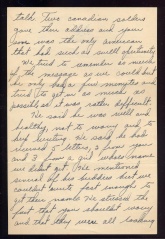 told two canadian soldiers
gave there address and yours
was not the only address
that had such as well
We tried to remember as much
of the message as we could but
he only had a few minutes and
tried to get in as much as
possible as it was rather difficult.
He said he was well and
healthy, not to worry and to
keep writing. He said he had
received 5 letters, 2 from you
and 3 from a girl whose name
we didn't get. He mentioned
several of his buddies but we
couldn't write fast enough to
get their names. He stressed the
fact that you shouldn't worry
and that they were all looking